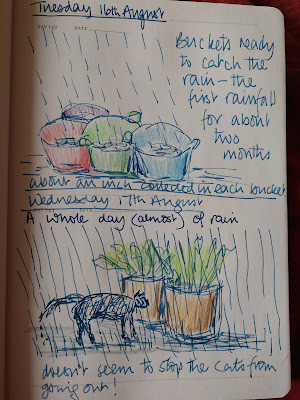 Tuesday 16th August
DATE
Buckets ready
to catch the
rain - the
first rainfall
for about
two
months
about an inch collected in each bucket
Wednesday 17th August
A whole day (almost) of rain
doesn't seem to stop the cats from
going out!